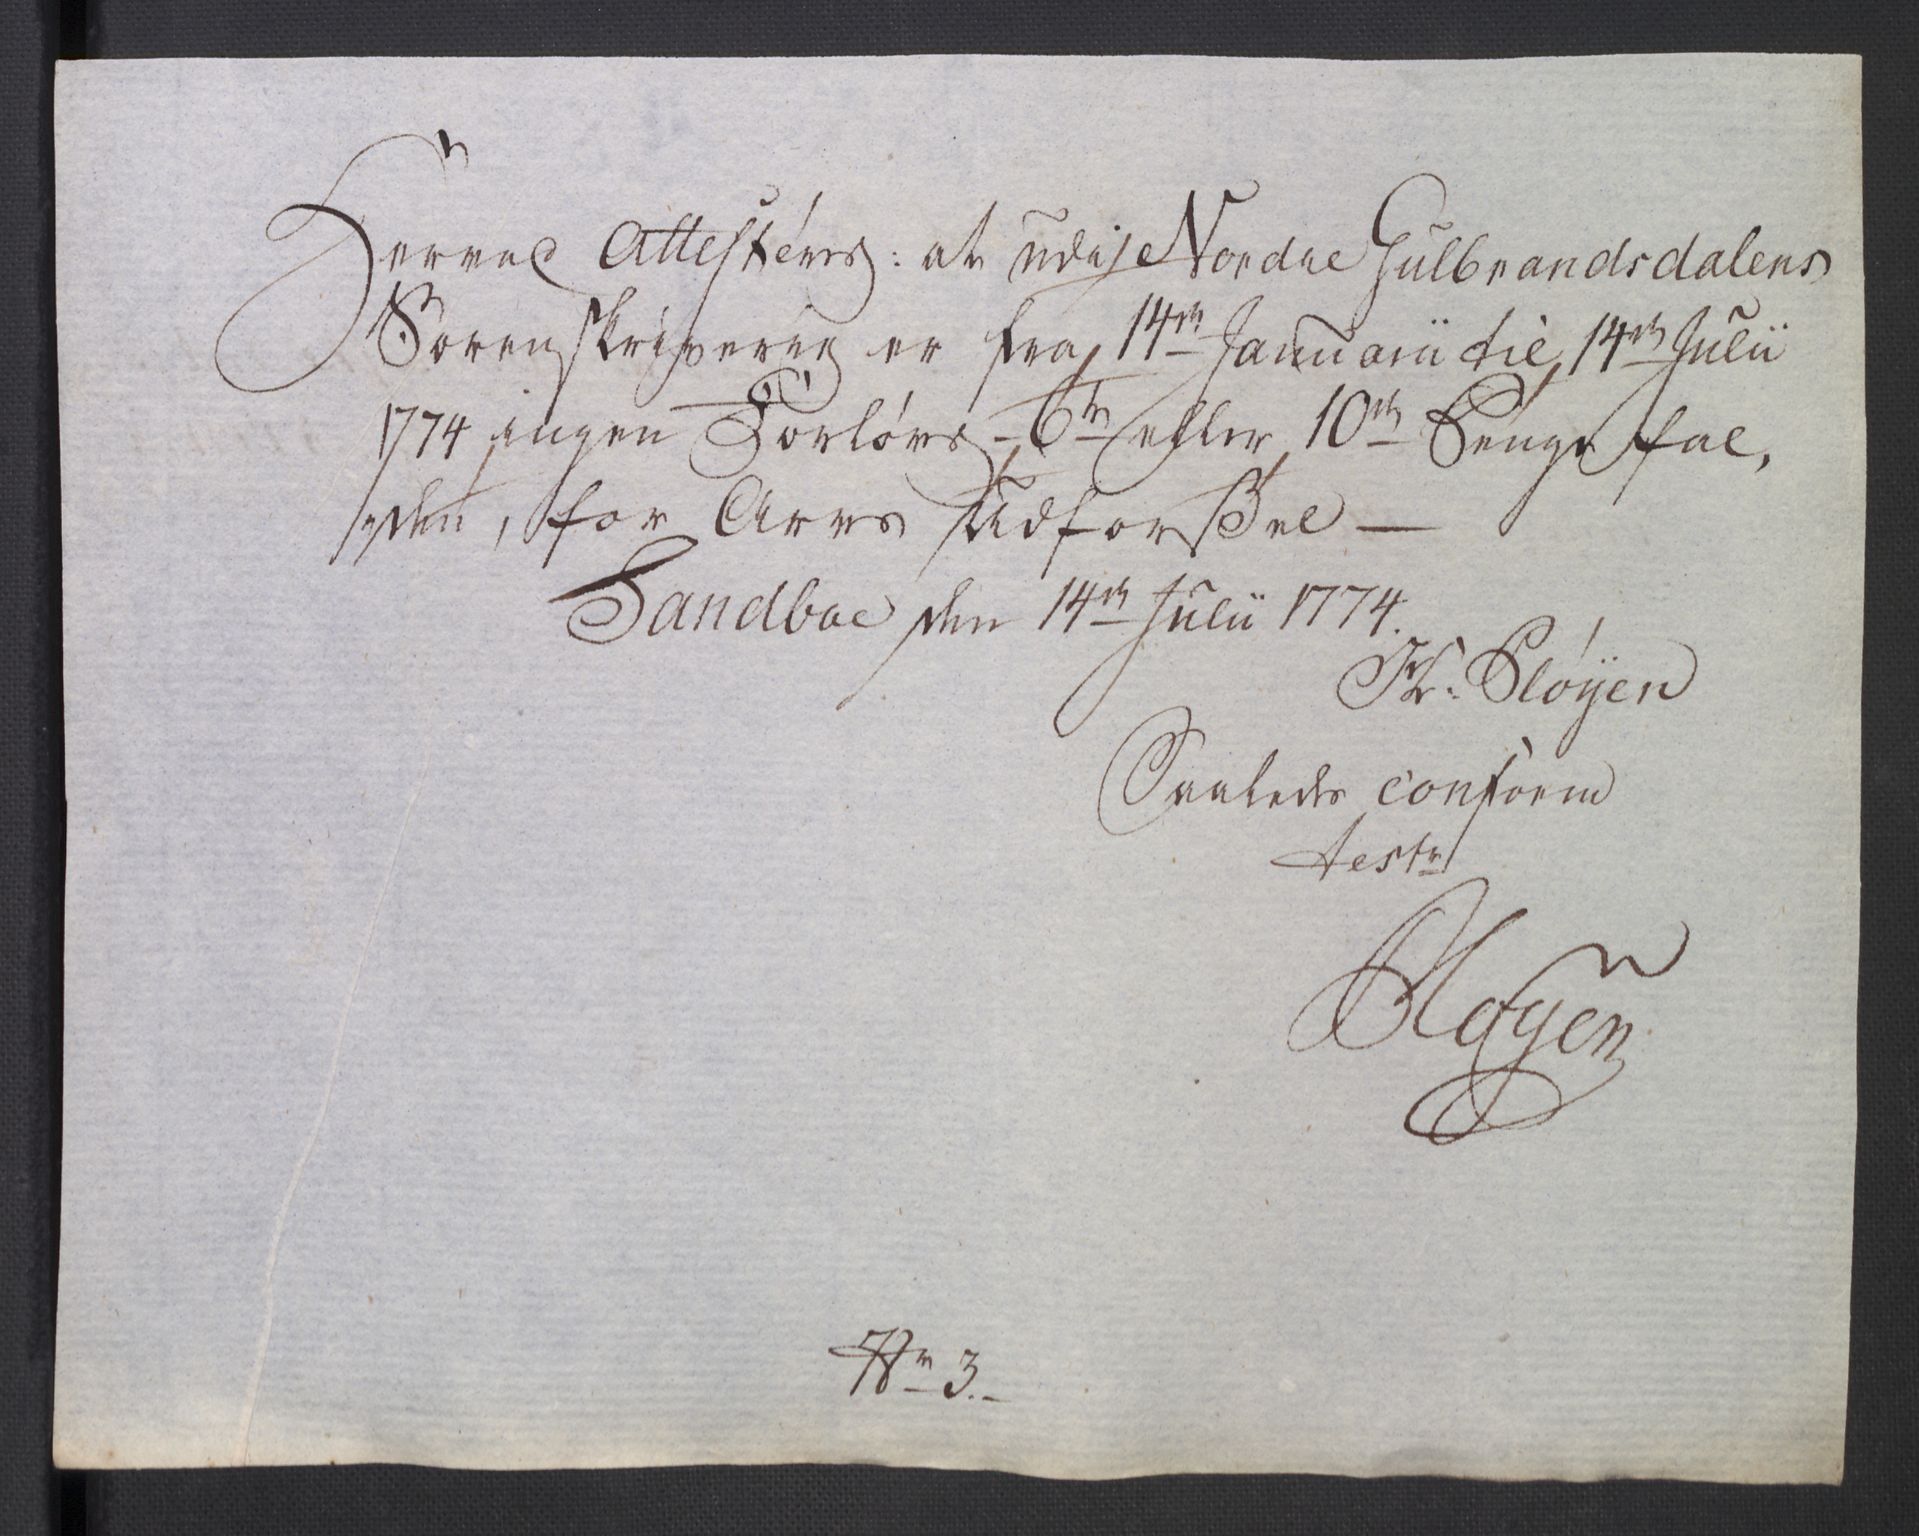 Herved Attesteres: at udi Nordre Gulbrandsdalens
Sorenskriverie er fra 14de Januarii til 14de Julii
1774 ingen Forlovs 6te eller 10de Penge fal,
den, for Arvs Udførsel —
Sandboe den 14de Julii 1774.
Pløyen
Saaledes conform
test
Pløyen
No 3.